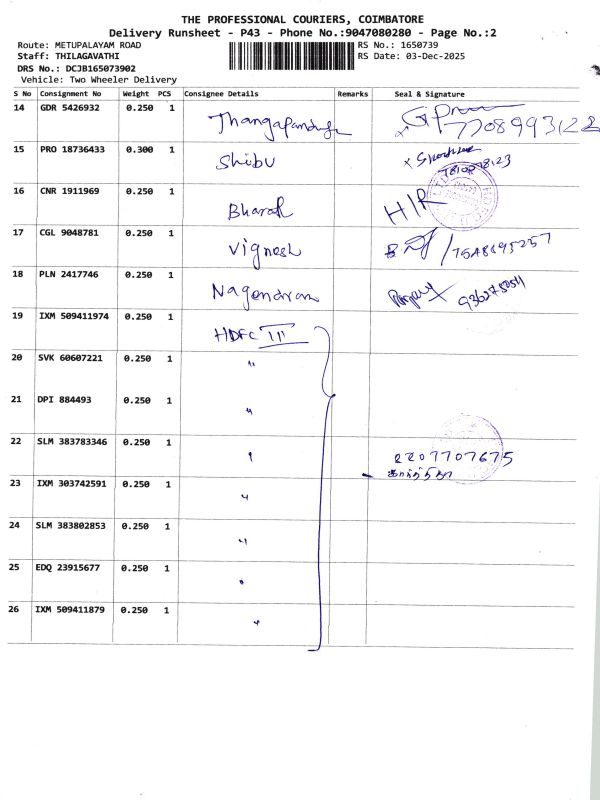 THE PROFESSIONAL COURIERS, COIMBATORE
Delivery Runsheet - P43 - Phone No.:9047080280 - Page No.:2
Route: METUPALAYAM ROAD RS No.: 1650739
Staff: THILAGAVATHI RS Date: 03-Dec-2025
DRS No.: DCJB165073902
Vehicle: Two Wheeler Delivery
S No Consignment No Weight PCS Consignee Details Remarks Seal & Signature
14 GDR 5426932 0.250 1 Thangapandi
7708993122
15 PRO 18736433 0.300 1 Shibu
16 CNR 1911969 0.250 1 Bharath H/R
17 CGL 9048781 0.250 1 Vignesh
18 PLN 2417746 0.250 1 Nagendran
19 IXM 509411974 0.250 1 HDFC III
20 SVK 60607221 0.250 1 "
21 DPI 884493 0.250 1 "
22 SLM 383783346 0.250 1 " 2207707675
23 IXM 303742591 0.250 1 "
24 SLM 383802853 0.250 1 "
25 EDQ 23915677 0.250 1 "
26 IXM 509411879 0.250 1 "